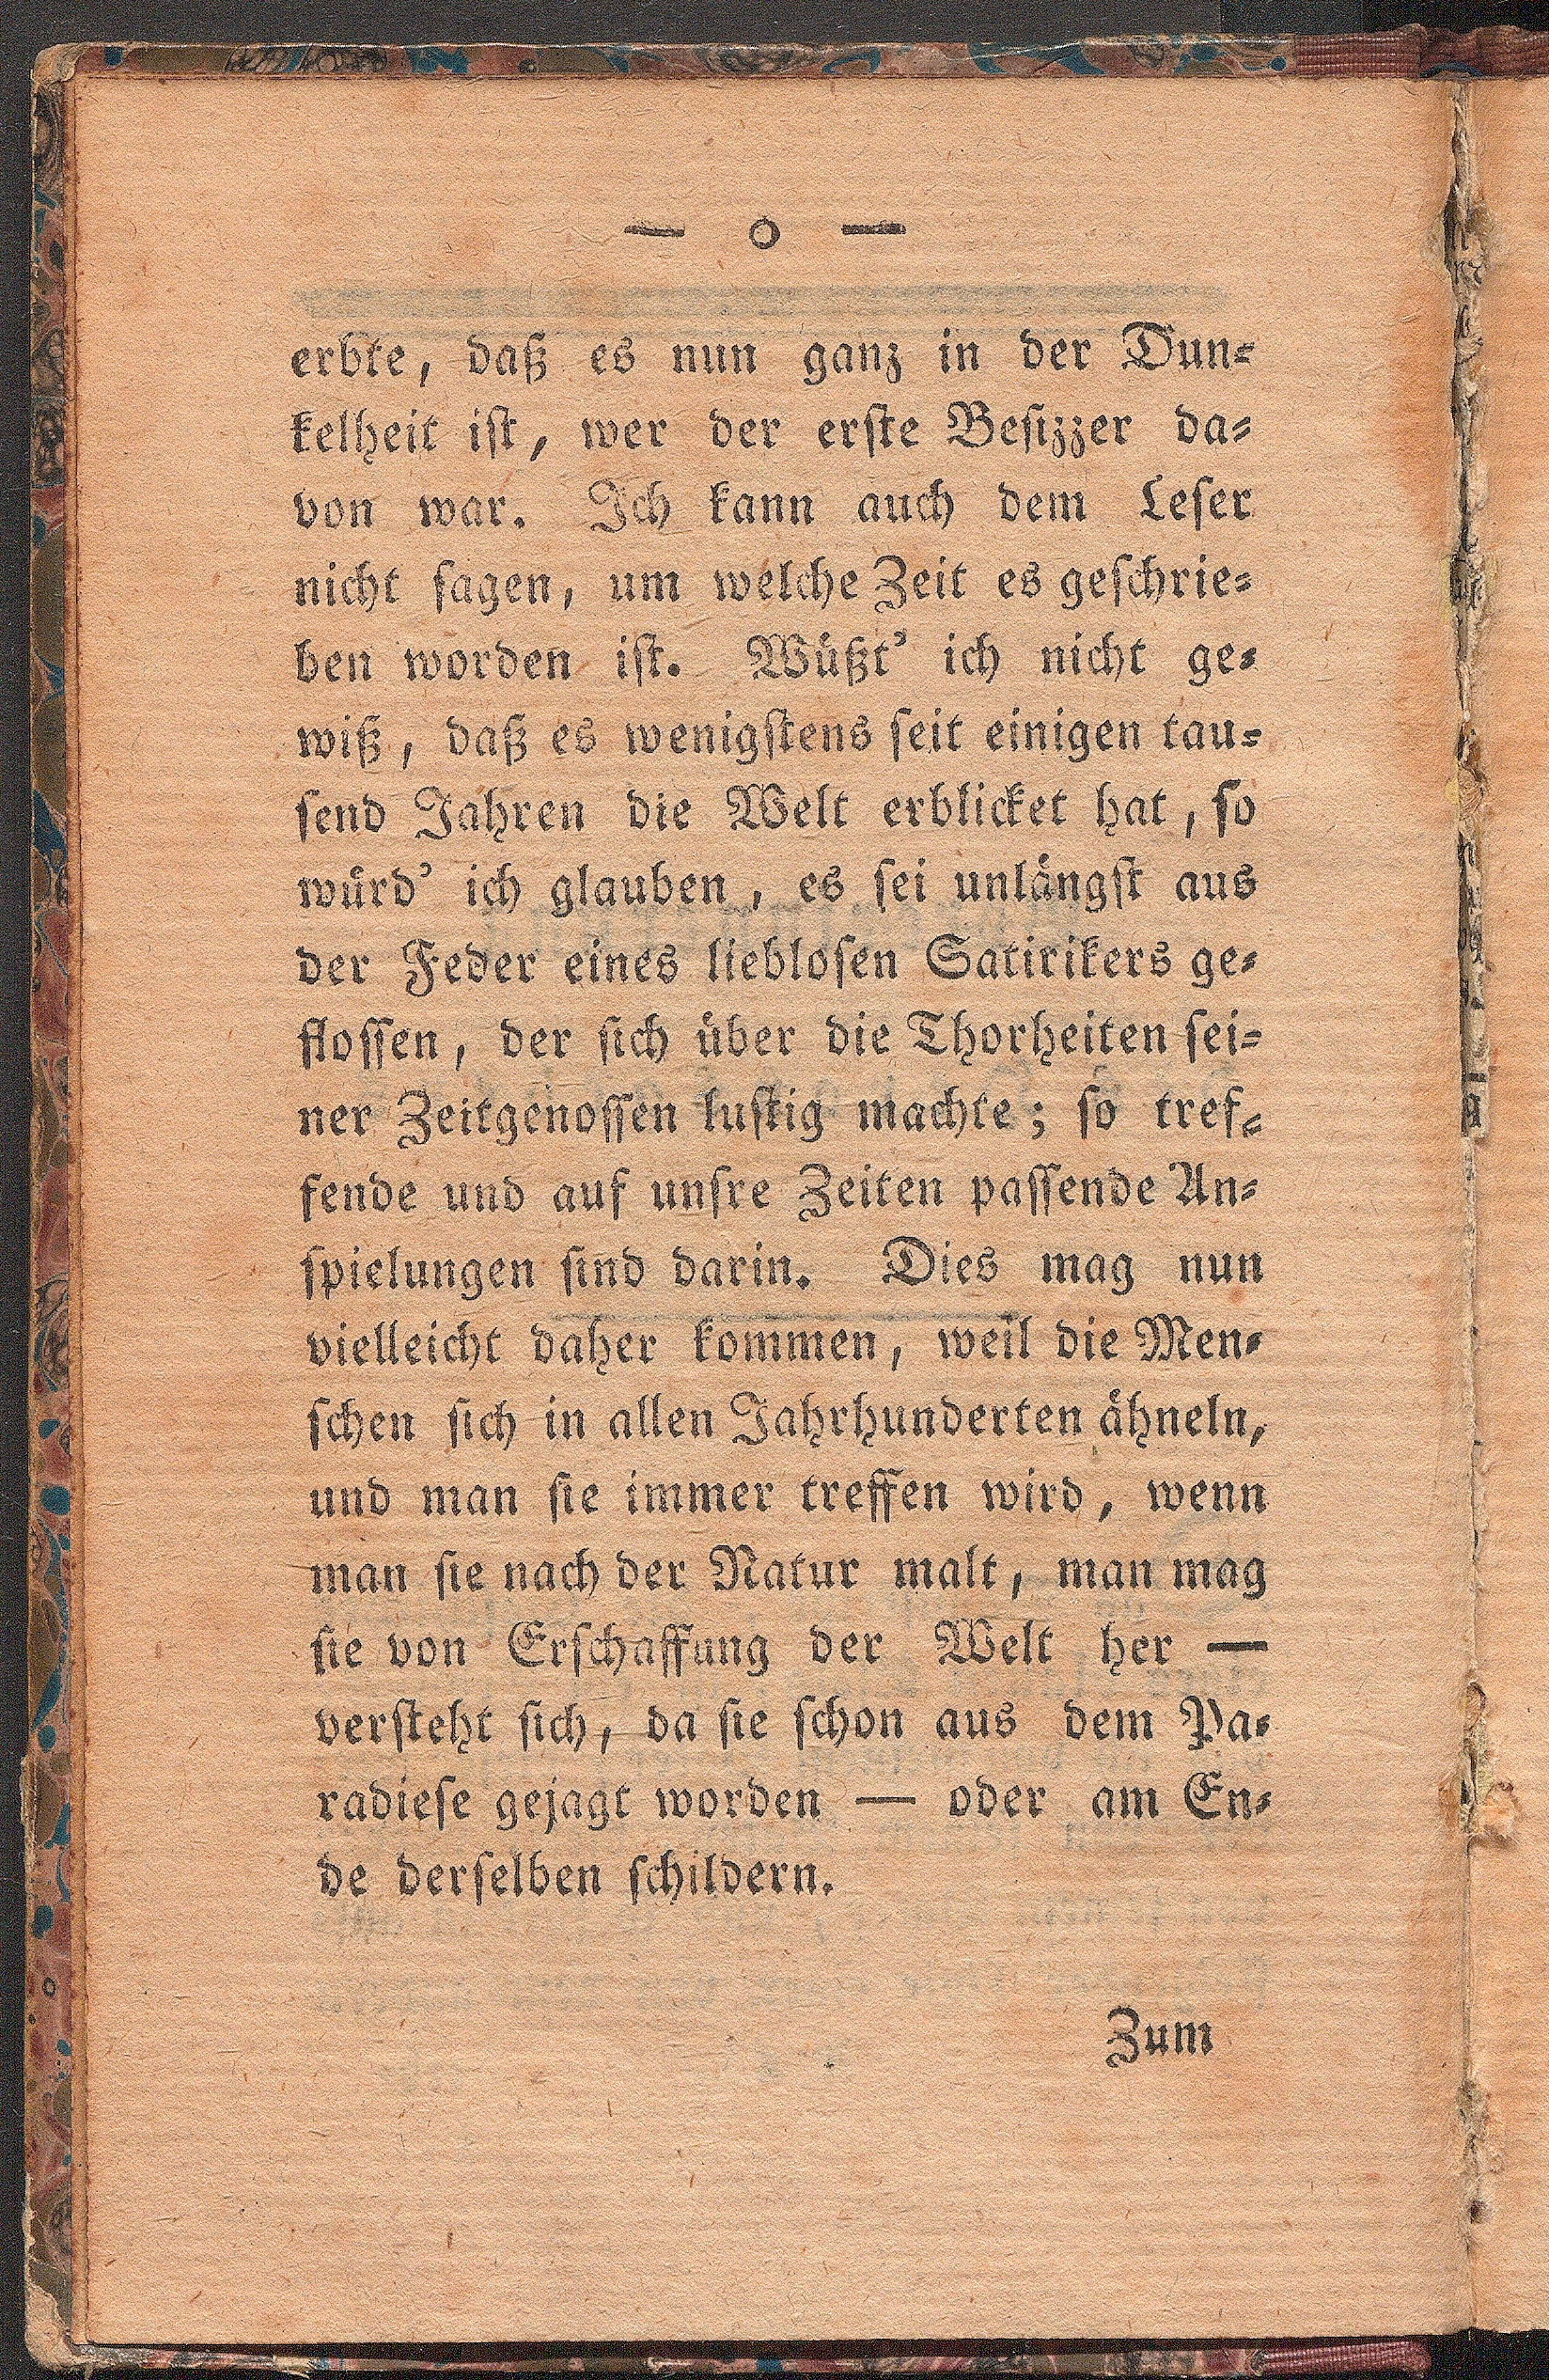 — o —
erbte, daß es nun ganz in der Dun⸗
kelheit iſt, wer der erſte Beſizzer da⸗
von war. Ich kann auch dem Leſer
nicht ſagen, um welche Zeit es geſchrie⸗
ben worden iſt. Wüßt’ ich nicht ge⸗
wiß, daß es wenigſtens ſeit einigen tau⸗
ſend Jahren die Welt erblicket hat, ſo
würd’ ich glauben, es ſei unlängſt aus
der Feder eines liebloſen Satirikers ge⸗
floſſen, der ſich über die Thorheiten ſei⸗
ner Zeitgenoſſen luſtig machte; ſo tref⸗
fende und auf unſre Zeiten paſſende An⸗
ſpielungen ſind darin. Dies mag nun
vielleicht daher kommen, weil die Men⸗
ſchen ſich in allen Jahrhunderten ähneln,
und man ſie immer treffen wird, wenn
man ſie nach der Natur malt, man mag
ſie von Erſchaffung der Welt her —
verſteht ſich, da ſie ſchon aus dem Pa⸗
radieſe gejagt worden — oder am En⸗
de derſelben ſchildern.
Zum